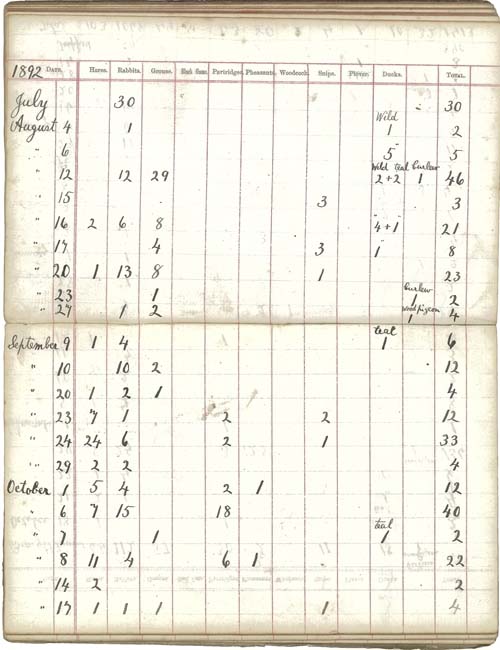 1892 DATE. Hares. Rabbits. Grouse. Black Game. Partridges. Pheasants. Woodcock. Snipe. Plover. Ducks. TOTAL.
July 30 30
Wild
August 4 1 1 2
" 6 5 5
Wild teal Curlew
" 12 12 29 2+2 1 46
" 15 3 3
" 16 2 6 8 4+1 21
" 17 4 3 1 8
" 20 1 13 8 1 23
Curlew
" 23 1 1 2
Wood pigeon
" 27 1 2 1 4
teal
September 9 1 4 1 6
" 10 10 2 12
" 20 1 2 1 4
" 23 7 1 2 2 12
" 24 24 6 2 1 33
" 29 2 2 4
October 1 5 4 2 1 12
" 6 7 15 18 40
teal
" 7 1 1 2
" 8 11 4 6 1 22
" 14 2 2
" 17 1 1 1 1 4